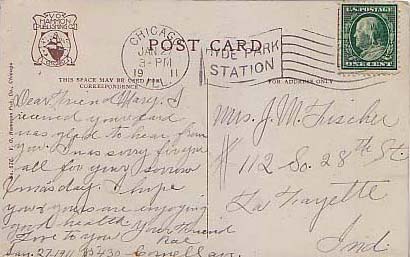 V.O.
HAMMON
PUBLISHING
CO.
CHICAGO
CHICAGO
JAN 27
3-PM
19 11
ILL.
POST CARD
HYDE PARK
STATION
U.S. POSTAGE
ONE CENT
THIS SPACE MAY BE USED FOR
CORRESPONDENCE
FOR ADDRESS ONLY
Dear Friend Mary. I
received your card
was glad to hear from
you. I was sorry for you
all for your sorrow
Xmas day. I hope
you & yours are enjoying
good health Your Friend
Love to you
Jan. 27 1911 5430 Cornell av.
Mrs. J. M. Fischer
# 112 So. 28th St.
La Fayette
Ind.
V. O. Hammon Pub. Co., Chicago